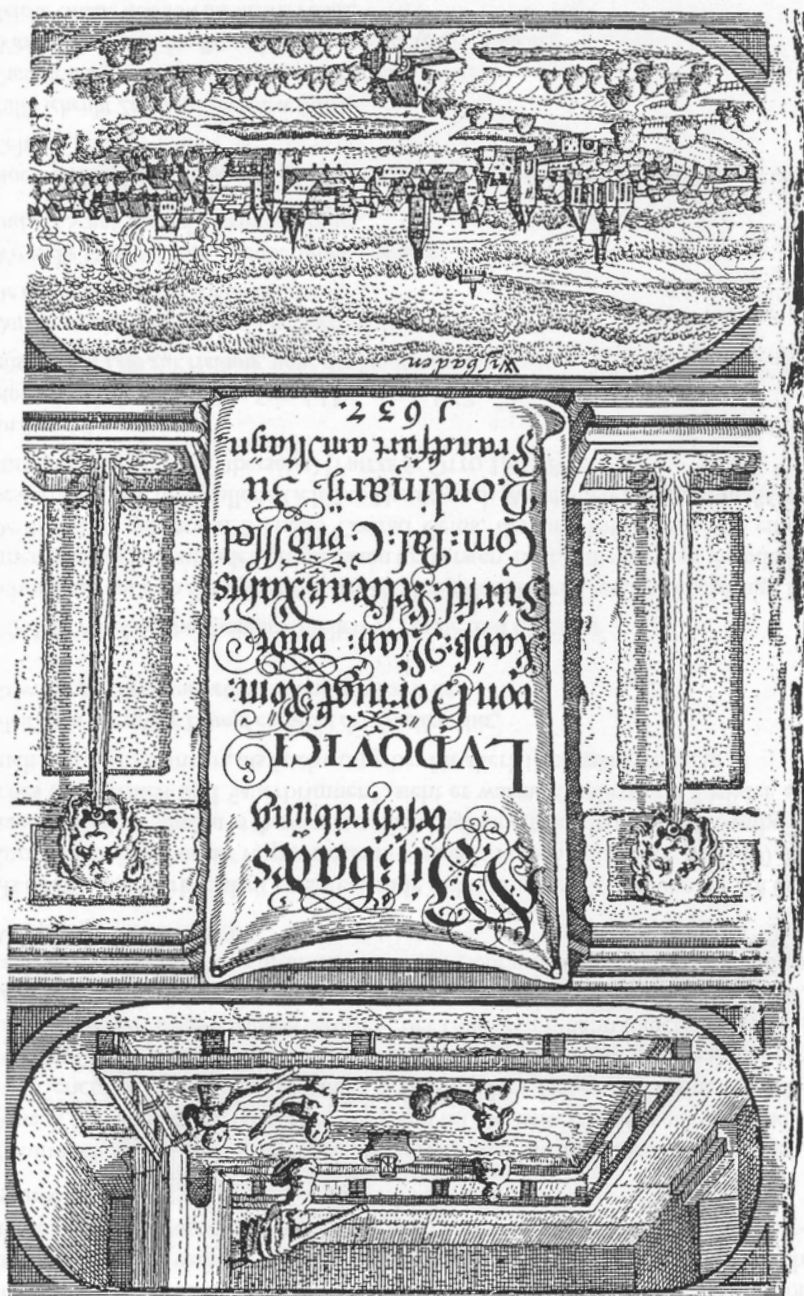 Wißbads
beschreibung
LVDOVICI
von Hörnigk Röm:
Kayß: May: vnd
Fürstl: Raths
Com: Pal: C: vnd Med.
P. ordinarÿ, Zu
Franckfurt am Mayn.
1637.
Wisbaden